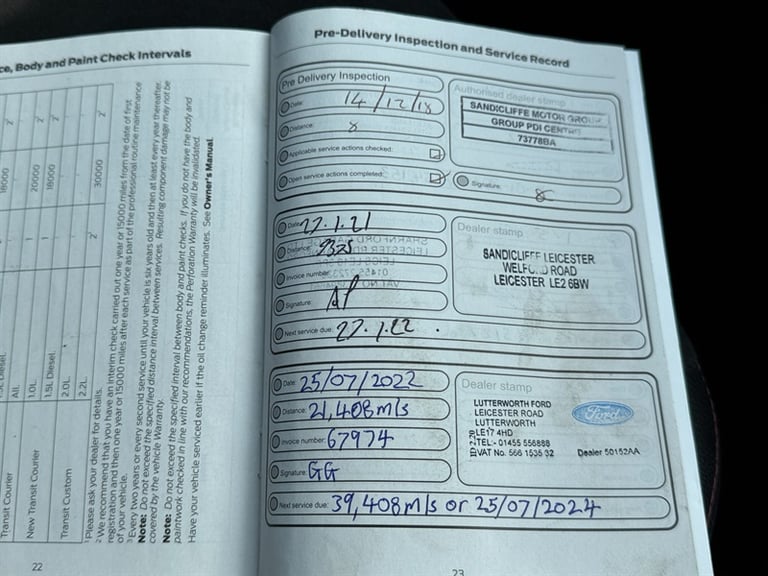 ce, Body and Paint Check Intervals
18000
2¹
20000
2¹
18000
2¹
30000
2¹
1
1
2¹
Transit Courier
All.
New Transit Courier
1.0L.
1.5L Diesel.
Transit Custom
2.0L.
2.2L.
¹ Please ask your dealer for details.
² We recommend that you have an interim check carried out one year or 15000 miles from the date of first
registration and then one year or 15000 miles after each service as part of the professional routine maintenance
of your vehicle.
³ Every two years or every second service until your vehicle is six years old and then at least every year thereafter.
Note: Do not exceed the specified distance interval between services. Resulting component damage may not be
covered by the vehicle Warranty.
Note: Do not exceed the specified interval between body and paint checks. If you do not have the body and
paintwork checked in line with our recommendations, the Perforation Warranty will be invalidated.
Have your vehicle serviced earlier if the oil change reminder illuminates. See Owner's Manual.
22
Pre-Delivery Inspection and Service Record
Pre Delivery Inspection
Date: 14/12/18
Distance: 8
Applicable service actions checked:
Open service actions completed:
Authorised dealer stamp
SANDICLIFFE MOTOR GROUP
GROUP PDI CENTRE
73778BA
Signature:
Date: 27.1.21
Distance:
Invoice number:
Signature: AP
Next service due: 27.1.22
Dealer stamp
SANDICLIFFE LEICESTER
WELFORD ROAD
LEICESTER LE2 6BW
Date: 25/07/2022
Distance: 21,408m/s
Invoice number: 67974
Signature: GG
Next service due: 39,408m/s or 25/07/2024
Dealer stamp
LUTTERWORTH FORD
LEICESTER ROAD
LUTTERWORTH
LE17 4HD
TEL - 01455 556888
VAT No. 566 1535 32
Dealer 50152AA
Ford
23